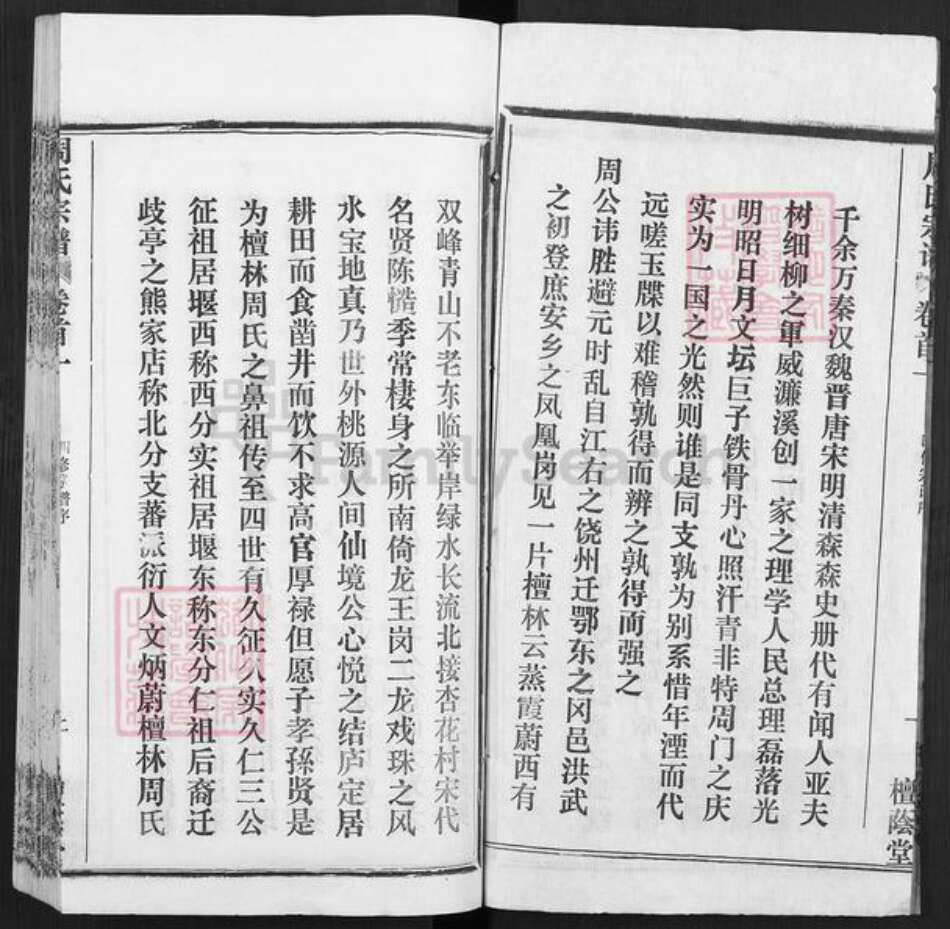 千余万秦汉魏晋唐宋明清森森史册代有闻人亚夫
树细柳之軍威濂溪创一家之理学人民总理磊落光
明昭日月文坛巨子铁骨丹心照汗青非特周门之庆
实为一国之光然则谁是同支孰为别系惜年湮而代
远嗟玉牒以难稽孰得而辨之孰得而强之
周公讳胜避元时乱自江右之饶州迁鄂东之冈邑洪武
之初登庶安乡之凤凰岗见一片檀林云蒸霞蔚西有
檀蔭堂
双峰青山不老东临举岸绿水长流北接杏花村宋代
名贤陈慥季常棲身之所南倚龙王岗二龙戏珠之风
水宝地真乃世外桃源人间仙境公心悦之结庐定居
耕田而食凿井而饮不求高官厚禄但愿子孝孫贤是
为檀林周氏之鼻祖传至四世有久征久实久仁三公
征祖居堰西称西分实祖居堰东称东分仁祖后裔迁
歧亭之熊家店称北分支蕃派衍人文炳蔚檀林周氏
周氏宗譜 卷首一
FamilySearch